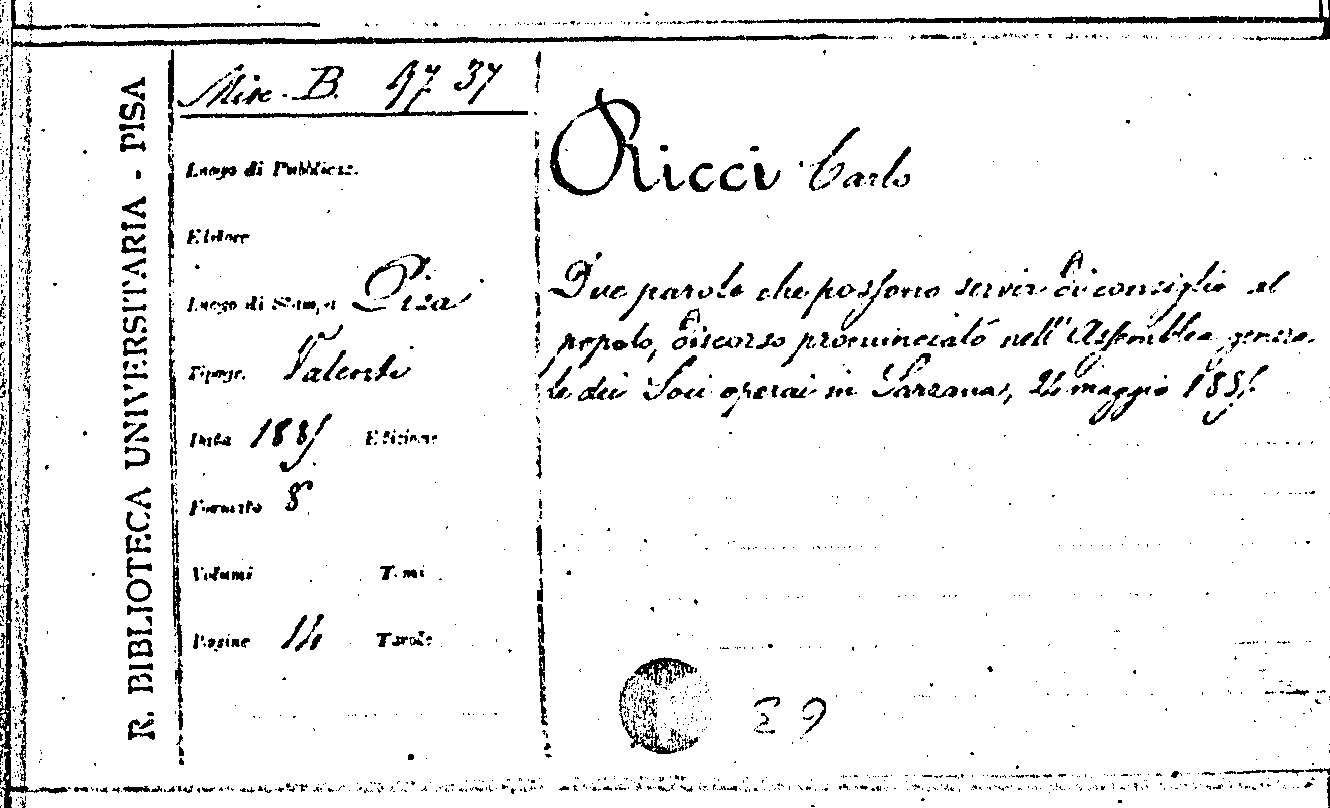 R. BIBLIOTECA UNIVERSITARIA - PISA
Misc. B. 97 37
Luogo di Pubblicaz.
Editore
Luogo di Stampa Pisa
Tipogr. Valenti
Data 1885 Edizione
Formato 8
Volumi Tomi
Pagine 14 Tavole
Ricci Carlo
Due parole che possono servir di consiglio al
popolo, discorso pronunciato nell'Assemblea genera-
le dei Soci operai in Sarzana, 24 maggio 1885.